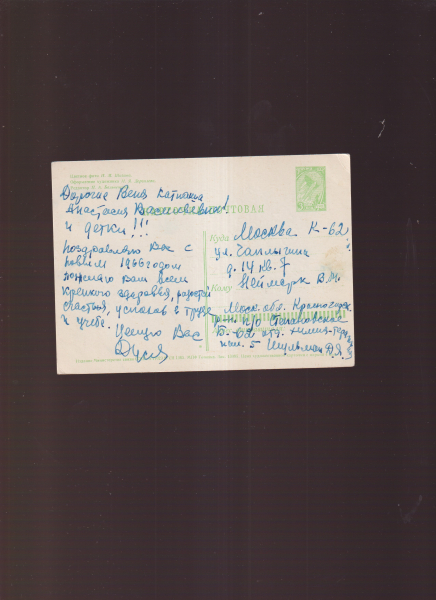 Дорогие Веня Катюша
Анастасия Васильевна!
и детки!!!
поздравляю Вас с
новым 1966 годом
желаю вам всем
крепкого здоровья, радостей
счастья, успехов в труде
и учебе.
Целую Вас
Дуся
ПОЧТОВАЯ
Куда Москва К-62
ул. Чаплыгина
д. 14 кв. 7
Кому Неймарк В.М.
Моск. обл. Красногорск.
р-н п/о Степановское
5 Шульман Д.Я.